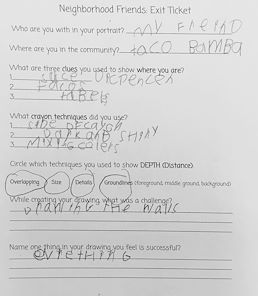 Neighborhood Friends: Exit Ticket
Who are you with in your portrait? MY FRIEND
Where are you in the community? taco BamBa
What are three clues you used to show where you are?
1.
2. tacos
3. tabels
What crayon techniques did you use?
1. SIDE OF CRAYON
2. DARK AND SHINY
3. MIXING colers
Circle which techniques you used to show DEPTH (Distance).
Overlapping Size Details Groundlines (foreground, middle ground, background)
While creating your drawing what was a challenge?
DRAWING THE Walls
Name one thing in your drawing you feel is successful?
EVRETHING